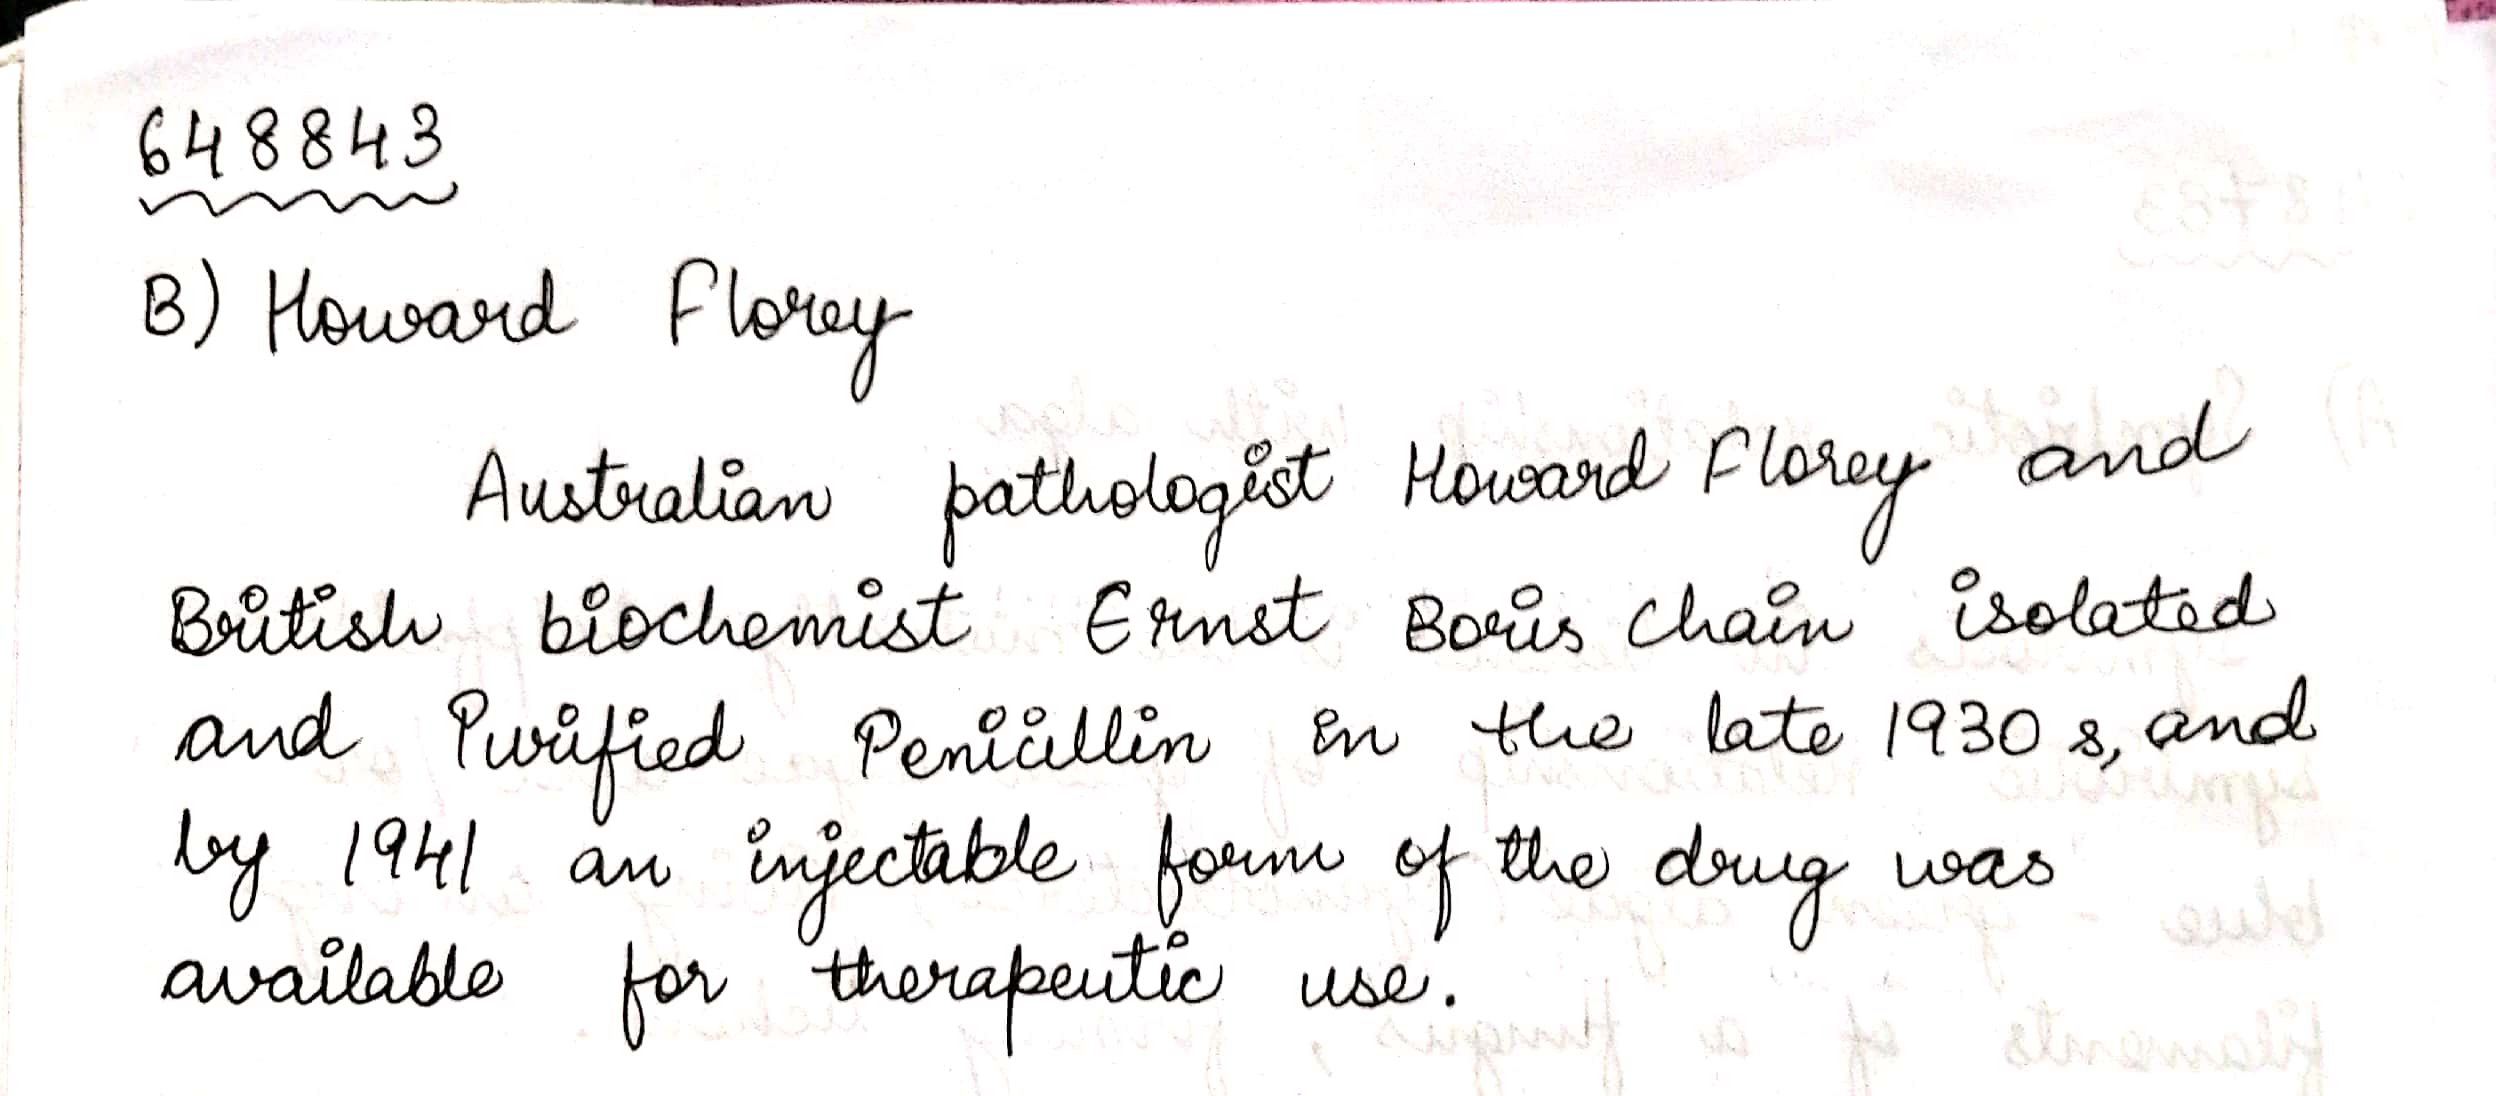 648843
B) Howard Florey
Australian pathologist Howard Florey and
British biochemist Ernst Boris Chain isolated
and Purified Penicillin in the late 1930s, and
by 1941 an injectable form of the drug was
available for therapeutic use.